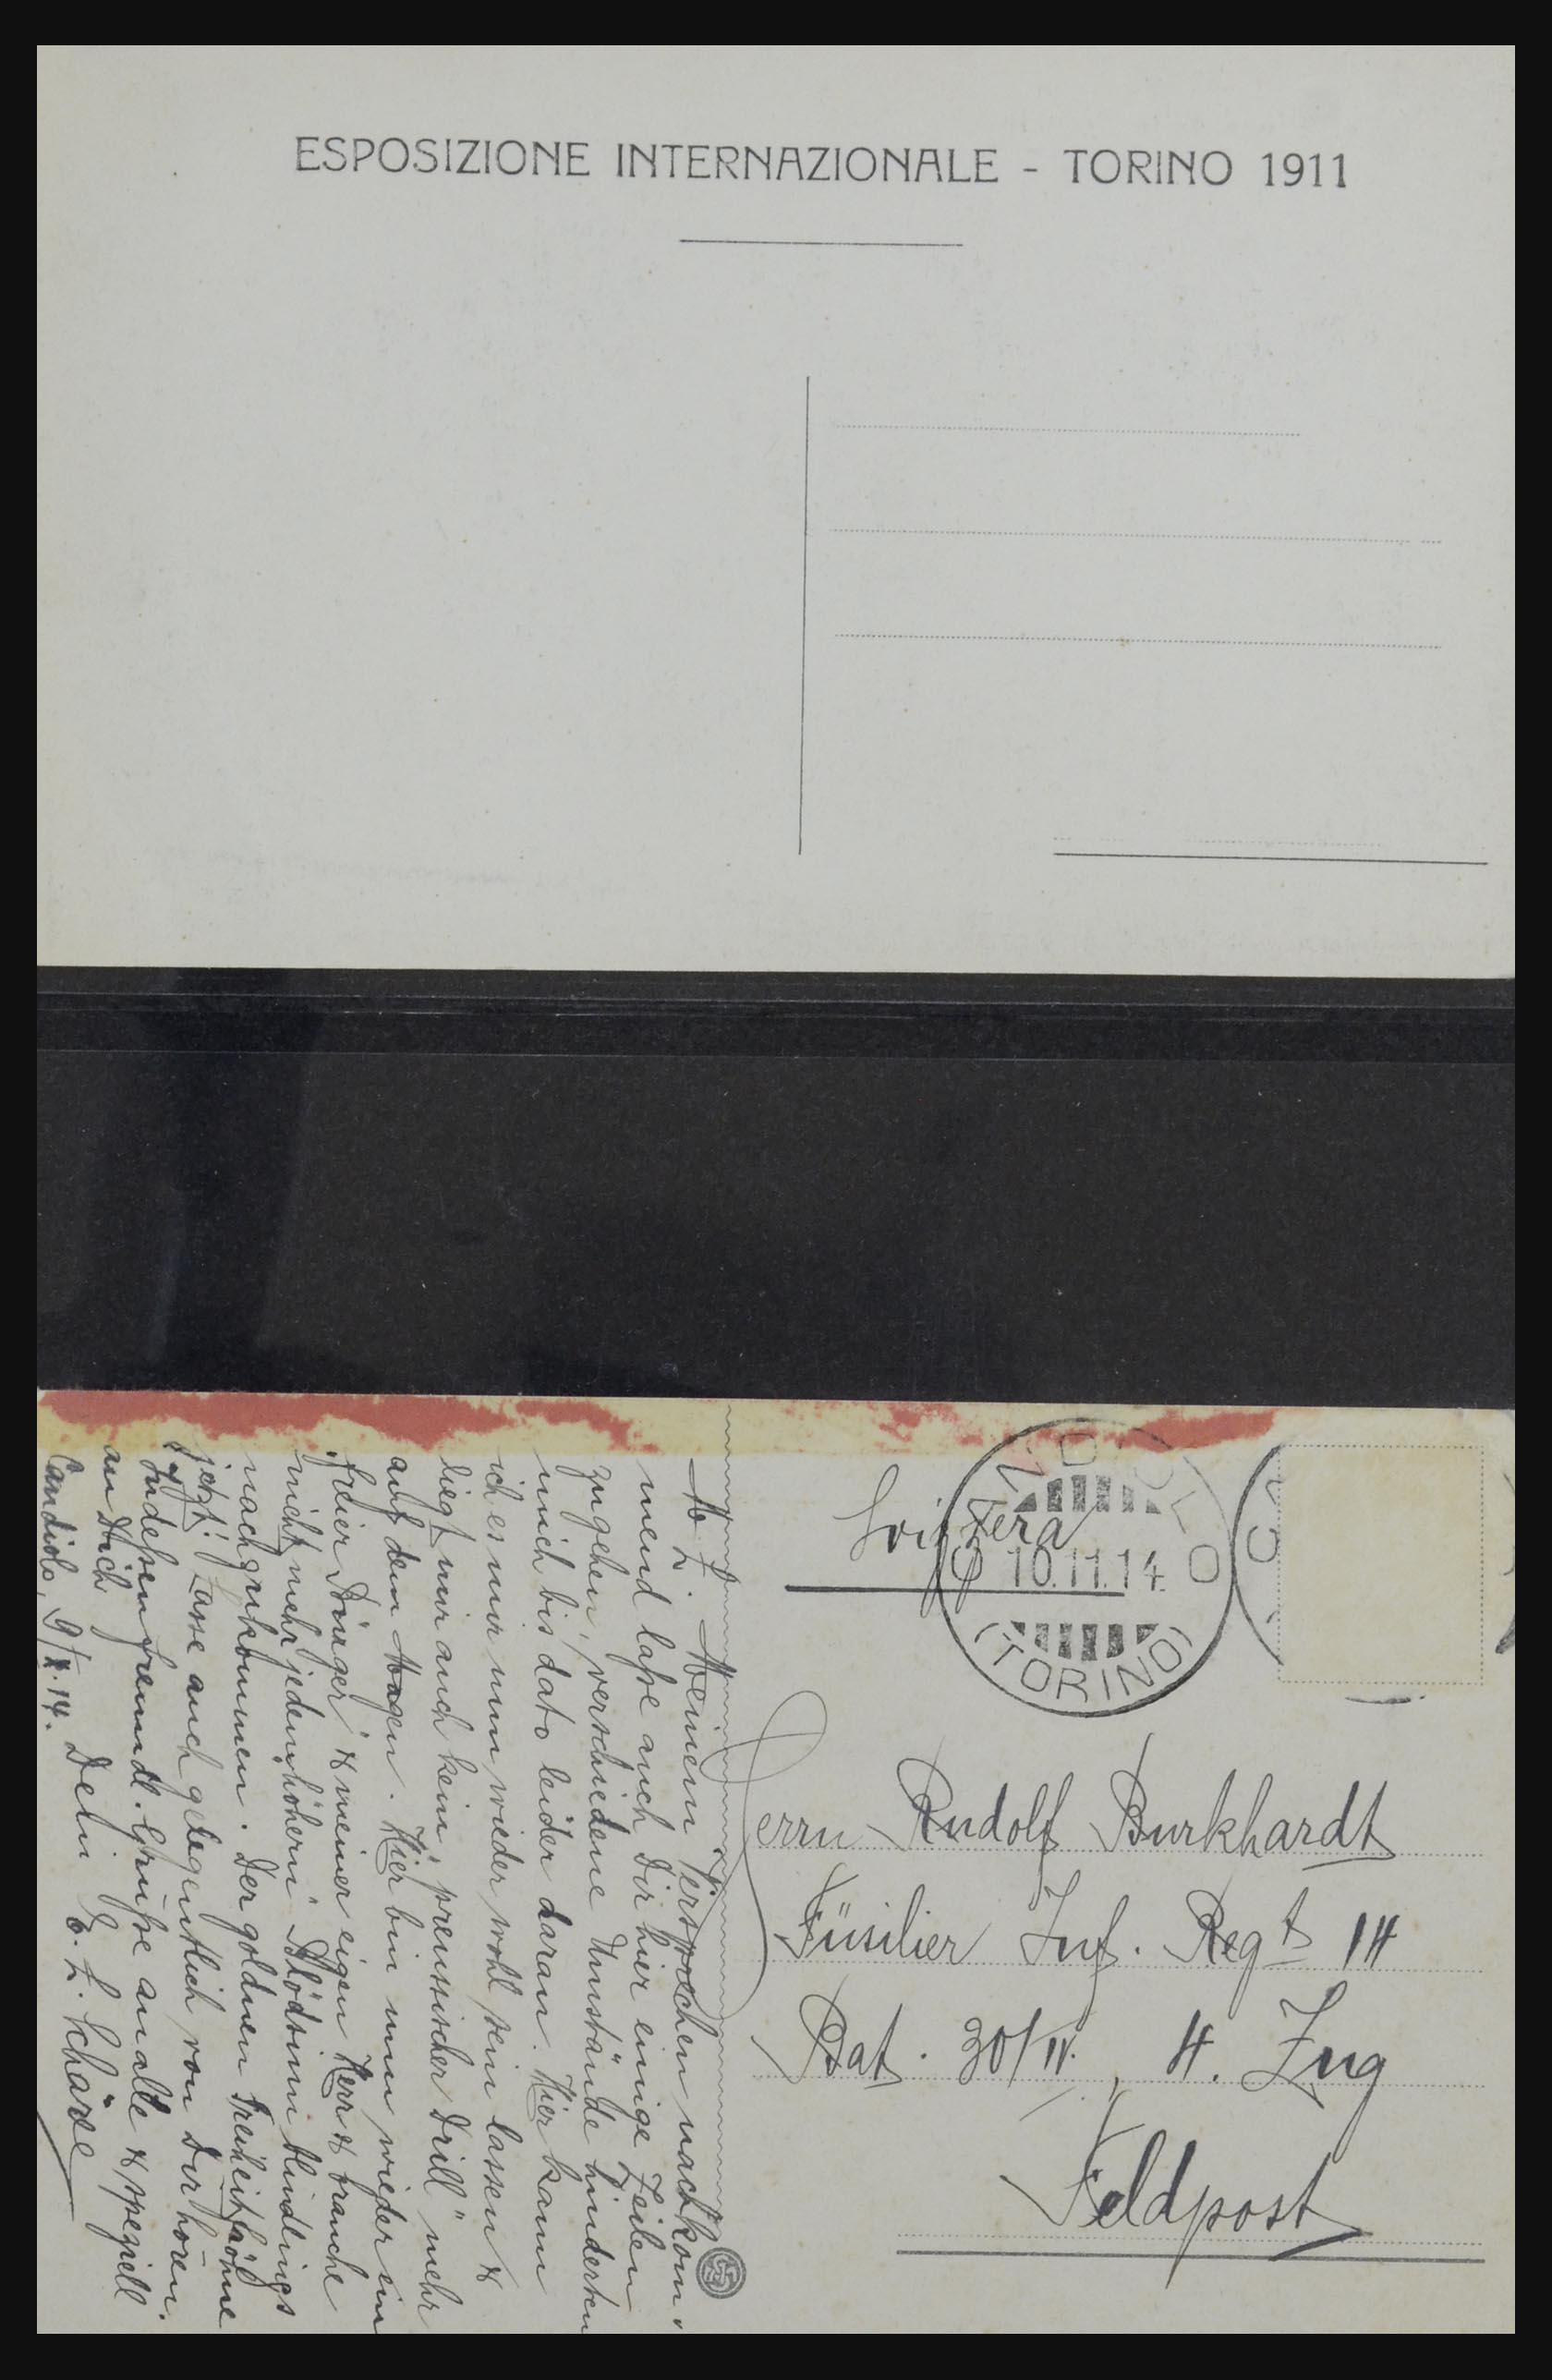 ESPOSIZIONE INTERNAZIONALE - TORINO 1911
Svizzera
10.11.14
(TORINO)
Herrn Rudolf Burkhardt
Füsilier Inf. Regt 14
Bat. 30/IV. 4. Zug
Feldpost
M. L. Meinem Versprechen nachkom-
mend lasse auch Dir hier einige Zeilen
zugehen, verschiedene Umstände hinderten
mich bis dato leider daran. Hier kann
ich es mir nun wieder wohl sein lassen &
liegt mir auch kein "preussischer Drill" mehr
auf dem Magen. Hier bin nun wieder ein
"freier Bürger" & meiner eigen Herr & brauche
nicht mehr jedem "höhern" Blödsinn blindlings
nachzukommen. Der goldnen Freiheit Söhne
jetzt! Lasse auch gelegentlich von Dir hören.
Indessen freundl. Grüsse an alle & speziell
an Dich Dein E. L. Schärer
Candiolo, 9/X.14.